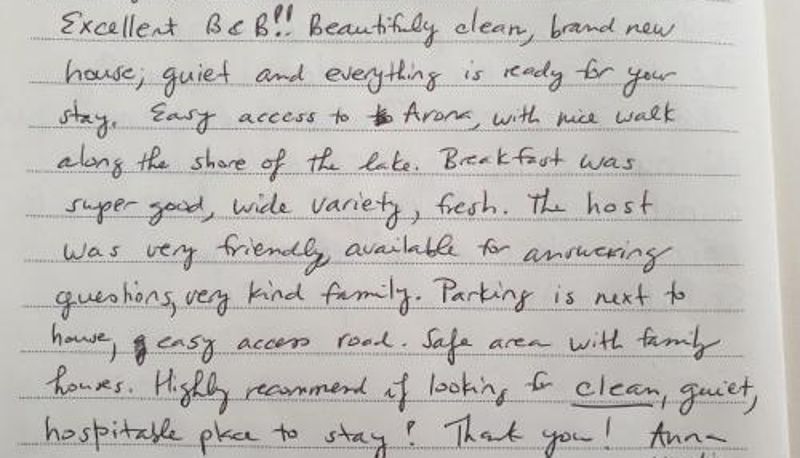 Excellent B & B!! Beautifuly clean, brand new
house; quiet and everything is ready for your
stay. Easy access to Arona, with nice walk
along the shore of the lake. Breakfast was
super good, wide variety, fresh. The host
was very friendly, available for answering
questions, very kind family. Parking is next to
house, easy access road. Safe area with family
houses. Highly recommend if looking for clean, quiet,
hospitable place to stay! Thank you! Anna